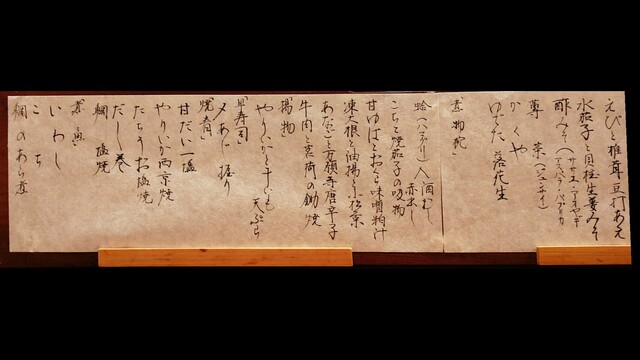 えびと椎茸豆打あえ
水茄子と貝柱生姜みそ
酢みそ(サザエ・アオヤギ
蓴菜(ジュンサイ)
かくや
ゆでた落花生
煮物椀
蛤(ハマグリ)入酒むし
赤出し
こちと焼茄子の吸物
甘ゆばとおくら味噌粕汁
凍大根と油揚と小松菜
あなごと万願寺唐辛子
牛肉と茗荷の鋤焼
揚物
やりいかとすゞき 天ぷら
早寿司
〆あじ 握り
焼肴
甘だい一塩
やりいか西京焼
たちうお塩焼
だし巻
鯛 塩焼
煮魚
いわし
こち
鯛のあら煮